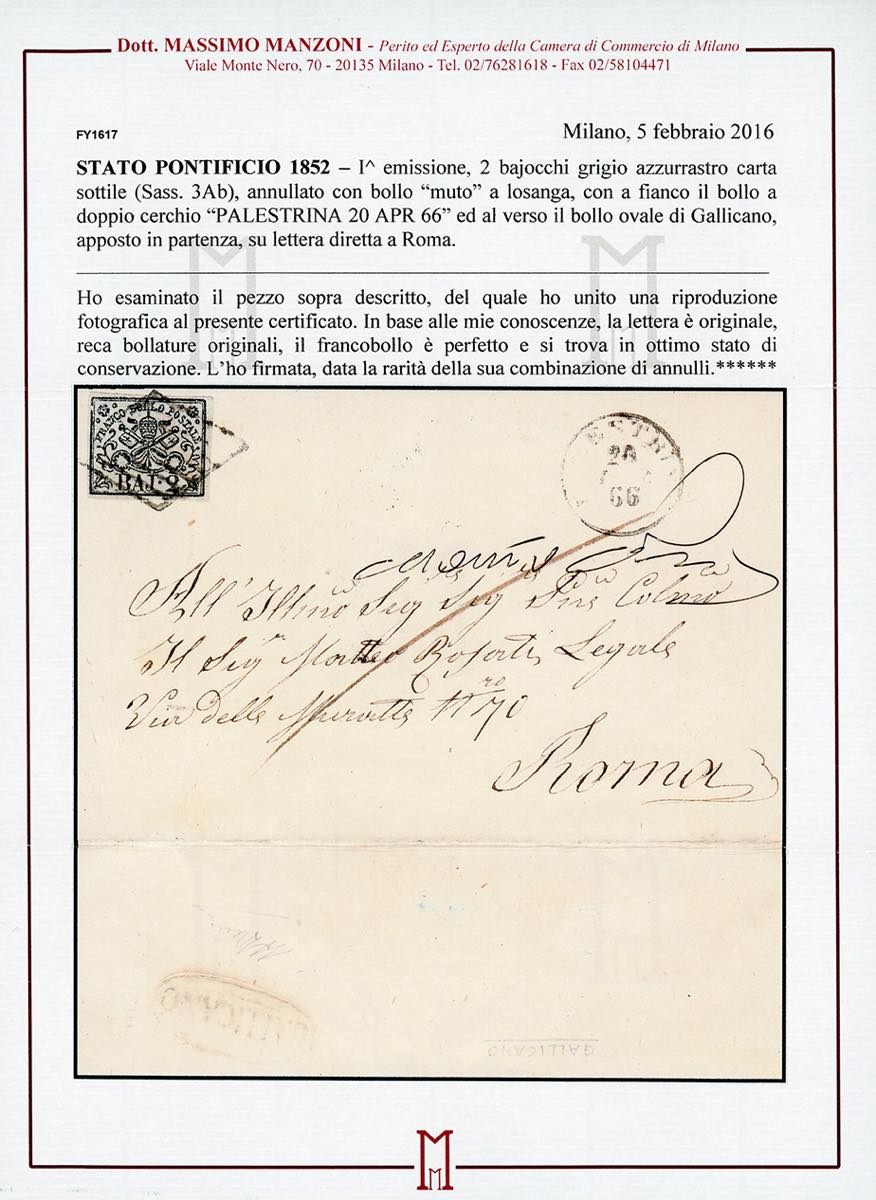 Dott. MASSIMO MANZONI - Perito ed Esperto della Camera di Commercio di Milano
Viale Monte Nero, 70 - 20135 Milano - Tel. 02/76281618 - Fax 02/58104471
FY1617
Milano, 5 febbraio 2016
STATO PONTIFICIO 1852 – I^ emissione, 2 bajocchi grigio azzurrastro carta
sottile (Sass. 3Ab), annullato con bollo “muto” a losanga, con a fianco il bollo a
doppio cerchio “PALESTRINA 20 APR 66” ed al verso il bollo ovale di Gallicano,
apposto in partenza, su lettera diretta a Roma.
Ho esaminato il pezzo sopra descritto, del quale ho unito una riproduzione
fotografica al presente certificato. In base alle mie conoscenze, la lettera è originale,
reca bollature originali, il francobollo è perfetto e si trova in ottimo stato di
conservazione. L’ho firmata, data la rarità della sua combinazione di annulli.******
FRANCO BOLLO POSTALE
BAJ. 2
ESTRI
20
66
All' Illmo Sig Sig
Il Sigr Matteo Legale
Via delle Muratte No 70
Roma
GALLICANO
M